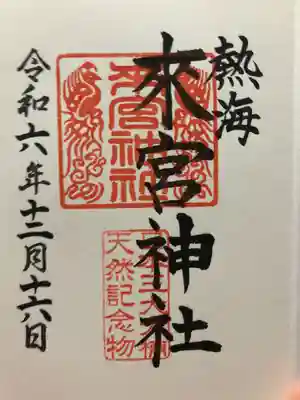 熱海
來宮神社
來宮神社
天然記念物
令和六年十二月十六日